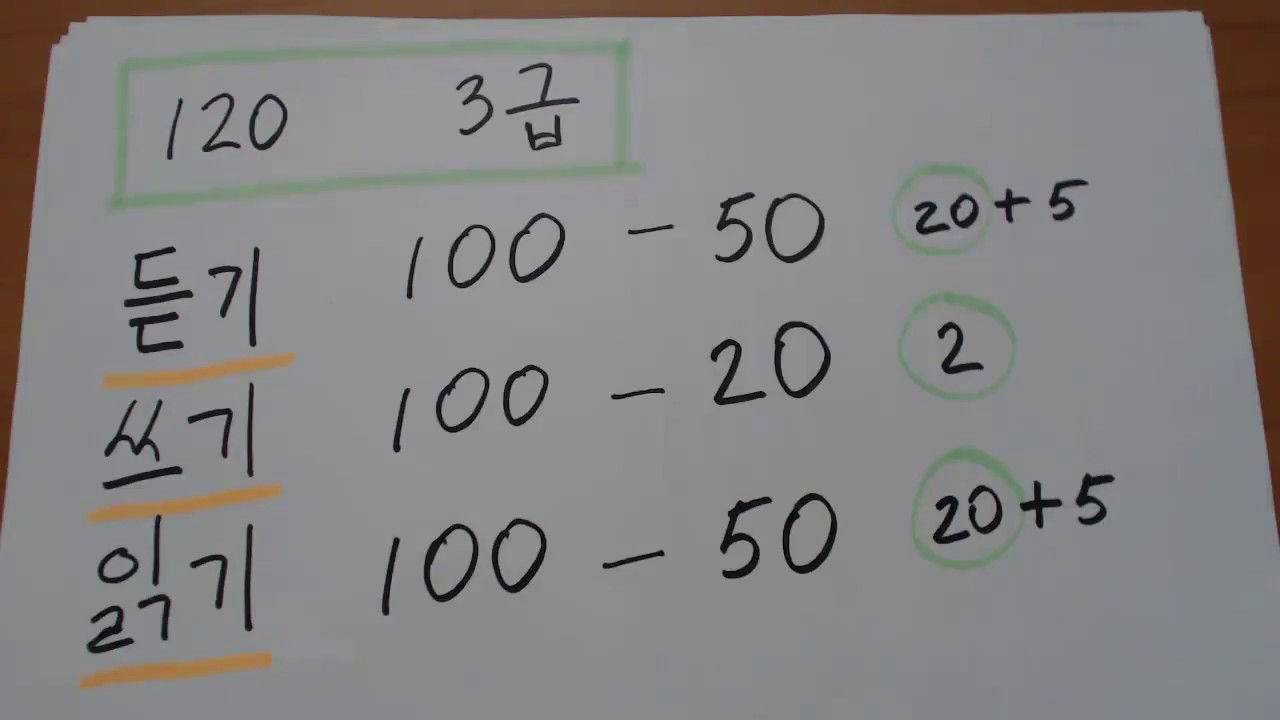 120 3급
듣기 100 - 50 20 + 5
쓰기 100 - 20 2
읽기 100 - 50 20 + 5